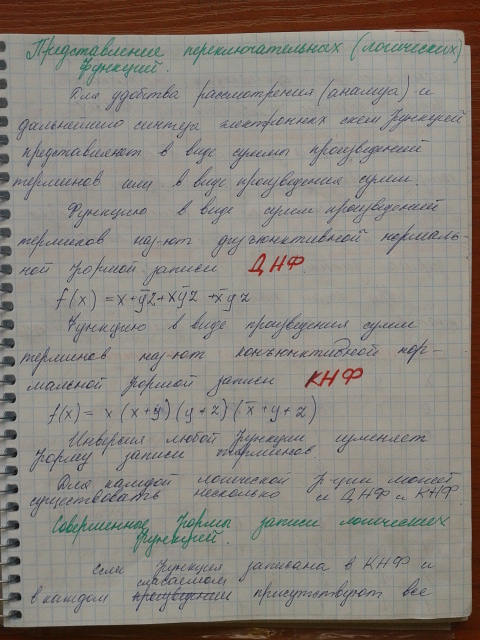 Представление переключательных (логических)
функций.
Для удобства рассмотрения (анализа) и
дальнейшего синтеза электронных схем функцией
представляют в виде суммы произведений
терминов или в виде произведения сумм.
Функцию в виде сумм произведений
терминов наз-ют дизъюнктивной нормаль-
ной формой записи ДНФ.
f(x) = x + y̅z + xy̅z + x̅yz
Функцию в виде произведения сумм
терминов наз-ют конъюнктивной нор-
мальной формой записи КНФ
f(x) = x (x + y̅) (y + z) (x̅ + y + z)
Инверсия любой функции изменяет
форму записи терминов.
Для каждой логической ф-ции может
существовать несколько и ДНФ и КНФ
Совершенные формы записи логических
функций.
если функция записана в КНФ и
слагаемом
в каждом произведении присутствуют все